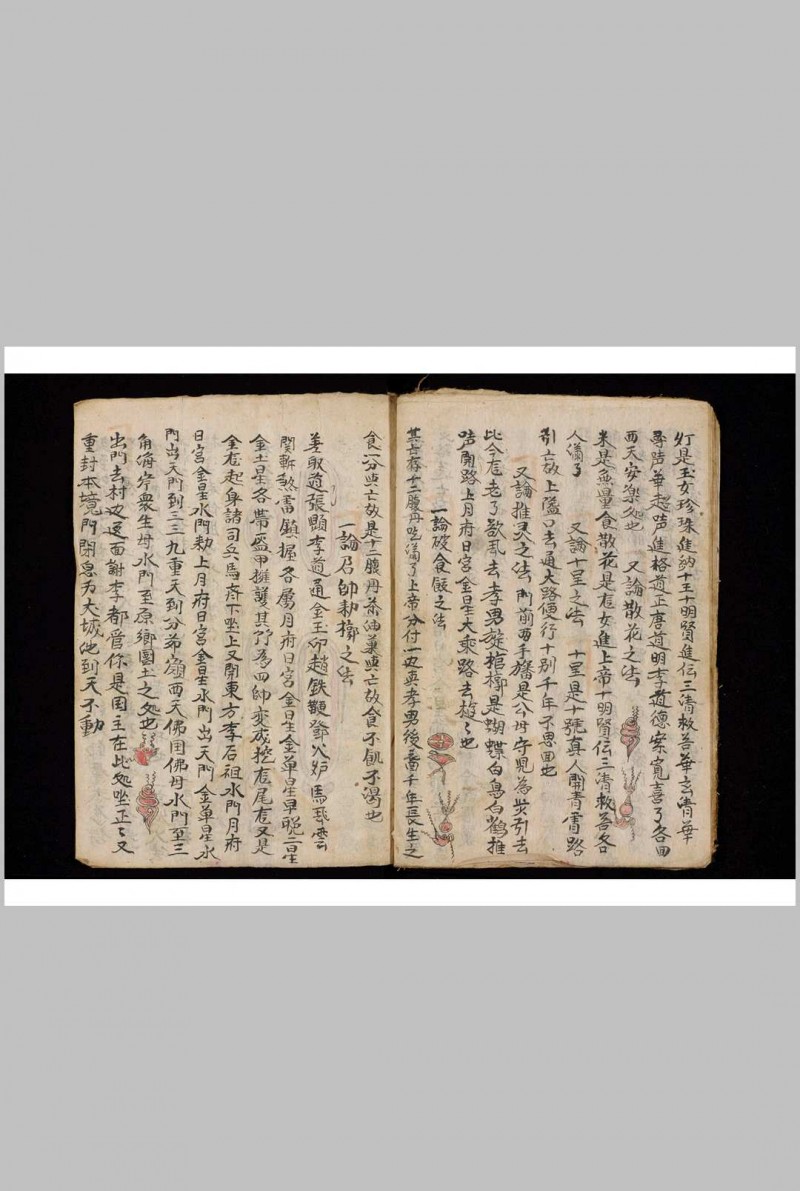 灯是玉女珍珠進納十王十明賢進伝三清救苦華玄清華
尋声華超声進格道正唐道明李道德案寬喜了各回
西天安樂処也　又論散花之法
来是無量食散花是㡯女進上帝十明賢伝三清救苦各
人満了　又論十呈之法　十呈是十號真人開青雲路
引亡故上盤口去通大路便行十別千年不思回也
又論推灵之法　門前両手旛是公母守児為灾引去
比今㡯老了欲乱去孝男旋棺槨是蝴蝶白鳥白鶴推
声開路上月府日宮金星大乘路去　〻也
一論破食飯之法
其亡存十二腹丹吃満了上帝分付一边與孝男後番千年長生之
食一分與亡故是十二腹丹茶油菓與亡故食不飢不渴也
一論召帥勅槨之法
差取道張顕李道通金玉印趙鉄鞭鄧火炉馬　雲
関斬煞雷鎮握各屬月府日宮金星金单星早晚二星
金土星各帶盔甲擁護其　為四帥変成挖㡯尾㡯又是
全㡯起身諸司兵馬府下坐上又開東方李石祖水門月府
日宮金星水門勅上月府日宮金星水門出天門金单星水
門出天門到三三九重天到分茅嶺西天佛国佛母水門至三
角海岸衆生母水門至原鄉国土之処也
出門去村边送面謝李都管你是国主在此処坐正〻又
重封本境門閉息为大城池到天不動